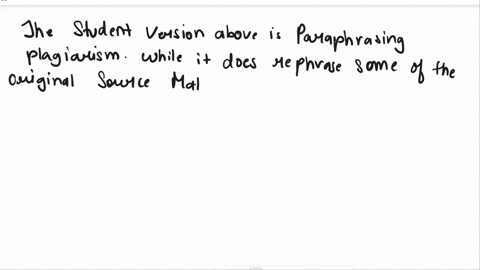 The Student version above is Paraphrasing
plagiarism. while it does rephrase some of the
original Source Mat